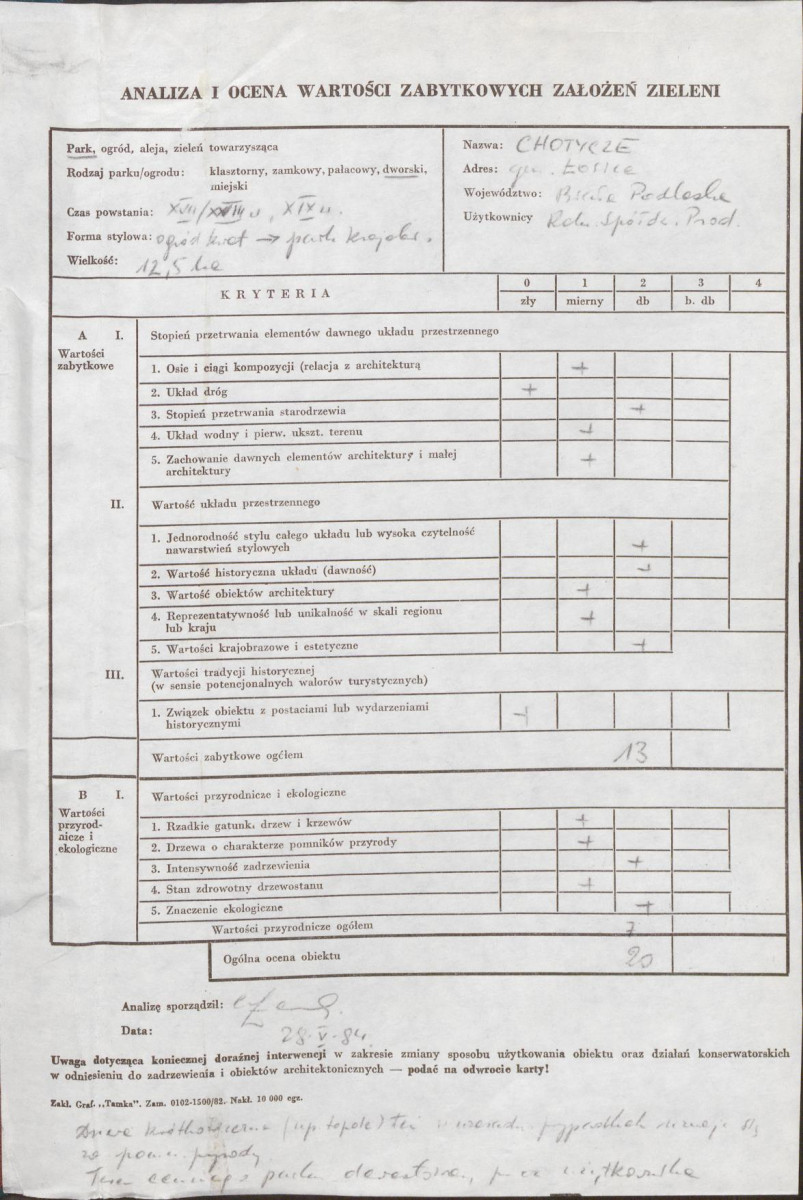 ANALIZA I OCENA WARTOŚCI ZABYTKOWYCH ZAŁOŻEŃ ZIELENI
Park, ogród, aleja, zieleń towarzysząca
Rodzaj parku/ogrodu: klasztorny, zamkowy, pałacowy, dworski, miejski
Czas powstania: XVII/XVIII w, XIX w.
Forma stylowa: ogród kwat → park krajobr.
Wielkość: 12,5 ha
Nazwa: CHOTYCZE
Adres: gm. Łosice
Województwo: Biała Podlaska
Użytkownicy Roln. Spółdz. Prod.
KRYTERIA 0 1 2 3 4
zły mierny db b. db
A I. Stopień przetrwania elementów dawnego układu przestrzennego
Wartości
zabytkowe
1. Osie i ciągi kompozycji (relacja z architekturą +
2. Układ dróg +
3. Stopień przetrwania starodrzewia +
4. Układ wodny i pierw. ukszt. terenu +
5. Zachowanie dawnych elementów architektury i małej
architektury +
II. Wartość układu przestrzennego
1. Jednorodność stylu całego układu lub wysoka czytelność
nawarstwień stylowych +
2. Wartość historyczna układu (dawność) +
3. Wartość obiektów architektury +
4. Reprezentatywność lub unikalność w skali regionu
lub kraju +
5. Wartości krajobrazowe i estetyczne +
III. Wartości tradycji historycznej
(w sensie potencjonalnych walorów turystycznych)
1. Związek obiektu z postaciami lub wydarzeniami
historycznymi +
Wartości zabytkowe ogółem 13
B I. Wartości przyrodnicze i ekologiczne
Wartości
przyrod-
nicze i
ekologiczne
1. Rzadkie gatunk. drzew i krzewów +
2. Drzewa o charakterze pomników przyrody +
3. Intensywność zadrzewienia +
4. Stan zdrowotny drzewostanu +
5. Znaczenie ekologiczne +
Wartości przyrodnicze ogółem 7
Ogólna ocena obiektu 20
Analizę sporządził:
Data: 28.V.84
Uwaga dotycząca koniecznej doraźnej interwencji w zakresie zmiany sposobu użytkowania obiektu oraz działań konserwatorskich
w odniesieniu do zadrzewienia i obiektów architektonicznych — podać na odwrocie karty!
Zakł. Graf. „Tamka”. Zam. 0102-1500/82. Nakł. 10 000 egz.
Drzewa krótkowieczne (np. topole) też w przypadkach
za pomn. przyrody
parku